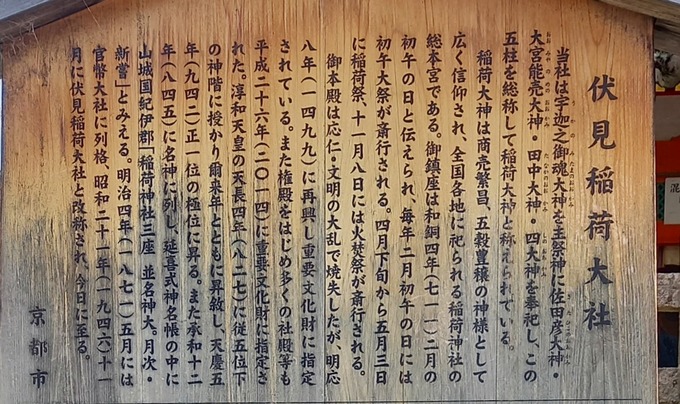 伏見稲荷大社
当社は宇迦之御魂大神を主祭神に佐田彦大神・
大宮能売大神・田中大神・四大神を奉祀し、この
五柱を総称して稲荷大神と称えられている。
稲荷大神は商売繁昌、五穀豊穣の神様として
広く信仰され、全国各地に祀られる稲荷神社の
総本宮である。御鎮座は和銅四年(七一一)二月の
初午の日と伝えられ、毎年二月初午の日には
初午大祭が斎行される。四月下旬から五月三日
に稲荷祭、十一月八日には火焚祭が斎行される。
御本殿は応仁・文明の大乱で焼失したが、明応
八年(一四九九)に再興し重要文化財に指定
されている。また権殿をはじめ多くの社殿等も
平成二十六年(二〇一四)に重要文化財に指定さ
れた。淳和天皇の天長四年(八二七)に従五位下
の神階に授かり爾来年とともに昇敍し、天慶五
年(九四二)正一位の極位に昇る。また承和十二
年(八四五)に名神に列し、延喜式神名帳の中に
山城国紀伊郡「稲荷神社三座 並名神大。月次・
新嘗」とみえる。明治四年(一八七一)五月には
官幣大社に列格、昭和二十一年(一九四六)十一
月に伏見稲荷大社と改称され、今日に至る。
京都市